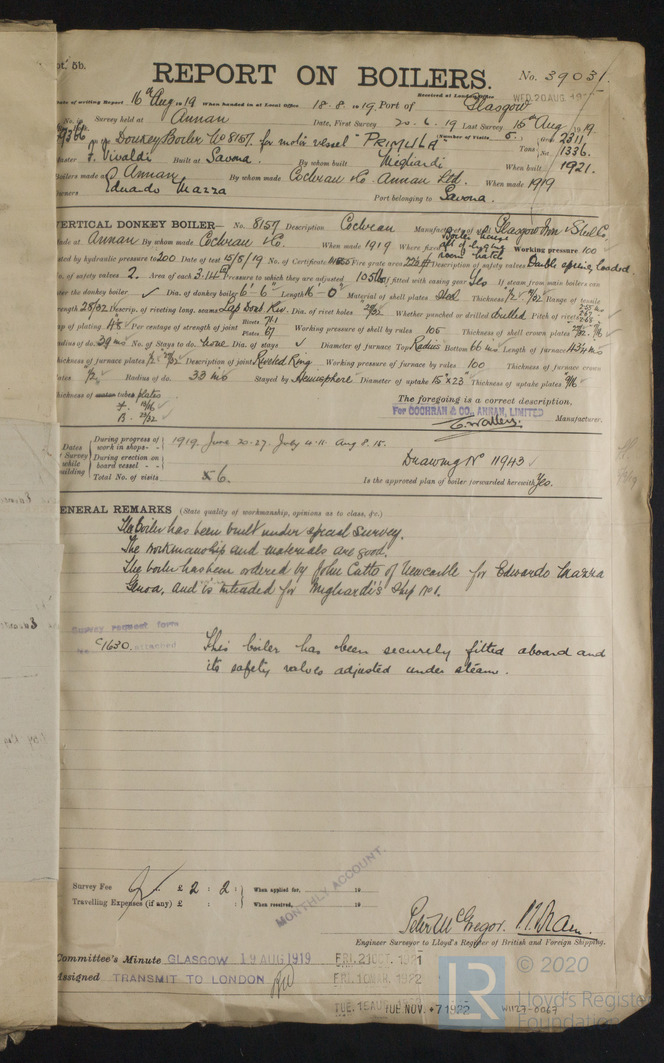 pt. 5b.
REPORT ON BOILERS.
No. 39031.
Date of writing Report 16th Aug 1919 When handed in at Local Office 18.8.1919 Port of Glasgow
Received at London Office WED. 20 AUG. 19
No. in Survey held at Annan Date, First Survey 20.6.19 Last Survey 15th Aug 1919
on the Donkey Boiler No 8157. for motor vessel "PRIMULA" (Number of Visits 6.) Tons Gross 2311 Net 1336.
Master F. Vivaldi Built at Savona. By whom built Migliardi When built 1921.
Boilers made at Annan By whom made Cochran & Co. Annan Ltd. When made 1919
Owners Eduardo Mazza Port belonging to Savona.
VERTICAL DONKEY BOILER— No. 8157 Description Cochran Manufacturers of Steel Glasgow Iron & Steel Co.
Made at Annan By whom made Cochran & Co. When made 1919 Where fixed Boiler house Working pressure 100
tested by hydraulic pressure to 200 Date of test 15/8/19 No. of Certificate Fire grate area Description of safety valves Double spring loaded
No. of safety valves 2. Area of each 3.14 Pressure to which they are adjusted 105 lbs If fitted with casing gear Yes If steam from main boilers can
enter the donkey boiler ✓ Dia. of donkey boiler 6'-6" Length 16'-0" Material of shell plates Steel Thickness Range of tensile
strength 28/32 Descrip. of riveting long. seams Lap Dble Riv. Dia. of rivet holes Whether punched or drilled drilled Pitch of rivets
Lap of plating Per centage of strength of joint Rivets Plates 67 Working pressure of shell by rules 105 Thickness of shell crown plates
Radius of do. 39 ins No. of Stays to do. None. Dia. of stays ✓ Diameter of furnace Top Radius Bottom 66 ins Length of furnace
Thickness of furnace plates Description of joint Riveted Ring Working pressure of furnace by rules 100 Thickness of furnace crown
plates 1/2 Radius of do. 33 ins Stayed by Hemisphere Diameter of uptake 15" x 23" Thickness of uptake plates 9/16
Thickness of water tubes plates
The foregoing is a correct description,
For COCHRAN & CO., ANNAN, LIMITED
Manufacturer.
Dates of Survey while building
During progress of work in shops - - 1919. June 20-27. July 4-11. Aug 8. 15.
During erection on board vessel - -
Total No. of visits 6.
Drawing No 11943
Is the approved plan of boiler forwarded herewith Yes.
GENERAL REMARKS (State quality of workmanship, opinions as to class, &c.)
This Boiler has been built under special survey.
The workmanship and materials are good.
The boiler has been ordered by John Catto of Newcastle for Edwardo Mazza
Genoa, and is intended for Migliardi's Ship No 1.
Survey request form
No. C1630 attached
This boiler has been securely fitted aboard and
its safety valves adjusted under steam.
Survey Fee £ 2 : 2 : When applied for, 19
Travelling Expenses (if any) £ : : When received, 19
MONTHLY ACCOUNT.
Peter McGregor.
Engineer Surveyor to Lloyd's Register of British and Foreign Shipping.
Committee's Minute GLASGOW 19 AUG 1919 FRI. 21 OCT. 1921
Assigned TRANSMIT TO LONDON FRI. 10 MAR. 1922
TUE. 15 AUG. TUE. NOV. 7 1922
W1127-0067
LR
© 2020
Lloyd's Register
Foundation